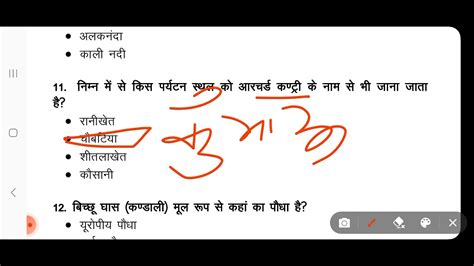 अलकनंदा
काली नदी
11. निम्न में से किस पर्यटन स्थल को आरचर्ड कण्ट्री के नाम से भी जाना जाता
है?
रानीखेत
चौबटिया
शीतलाखेत
कौसानी
12. बिच्छू घास (कण्डाली) मूल रूप से कहां का पौधा है?
यूरोपीय पौधा